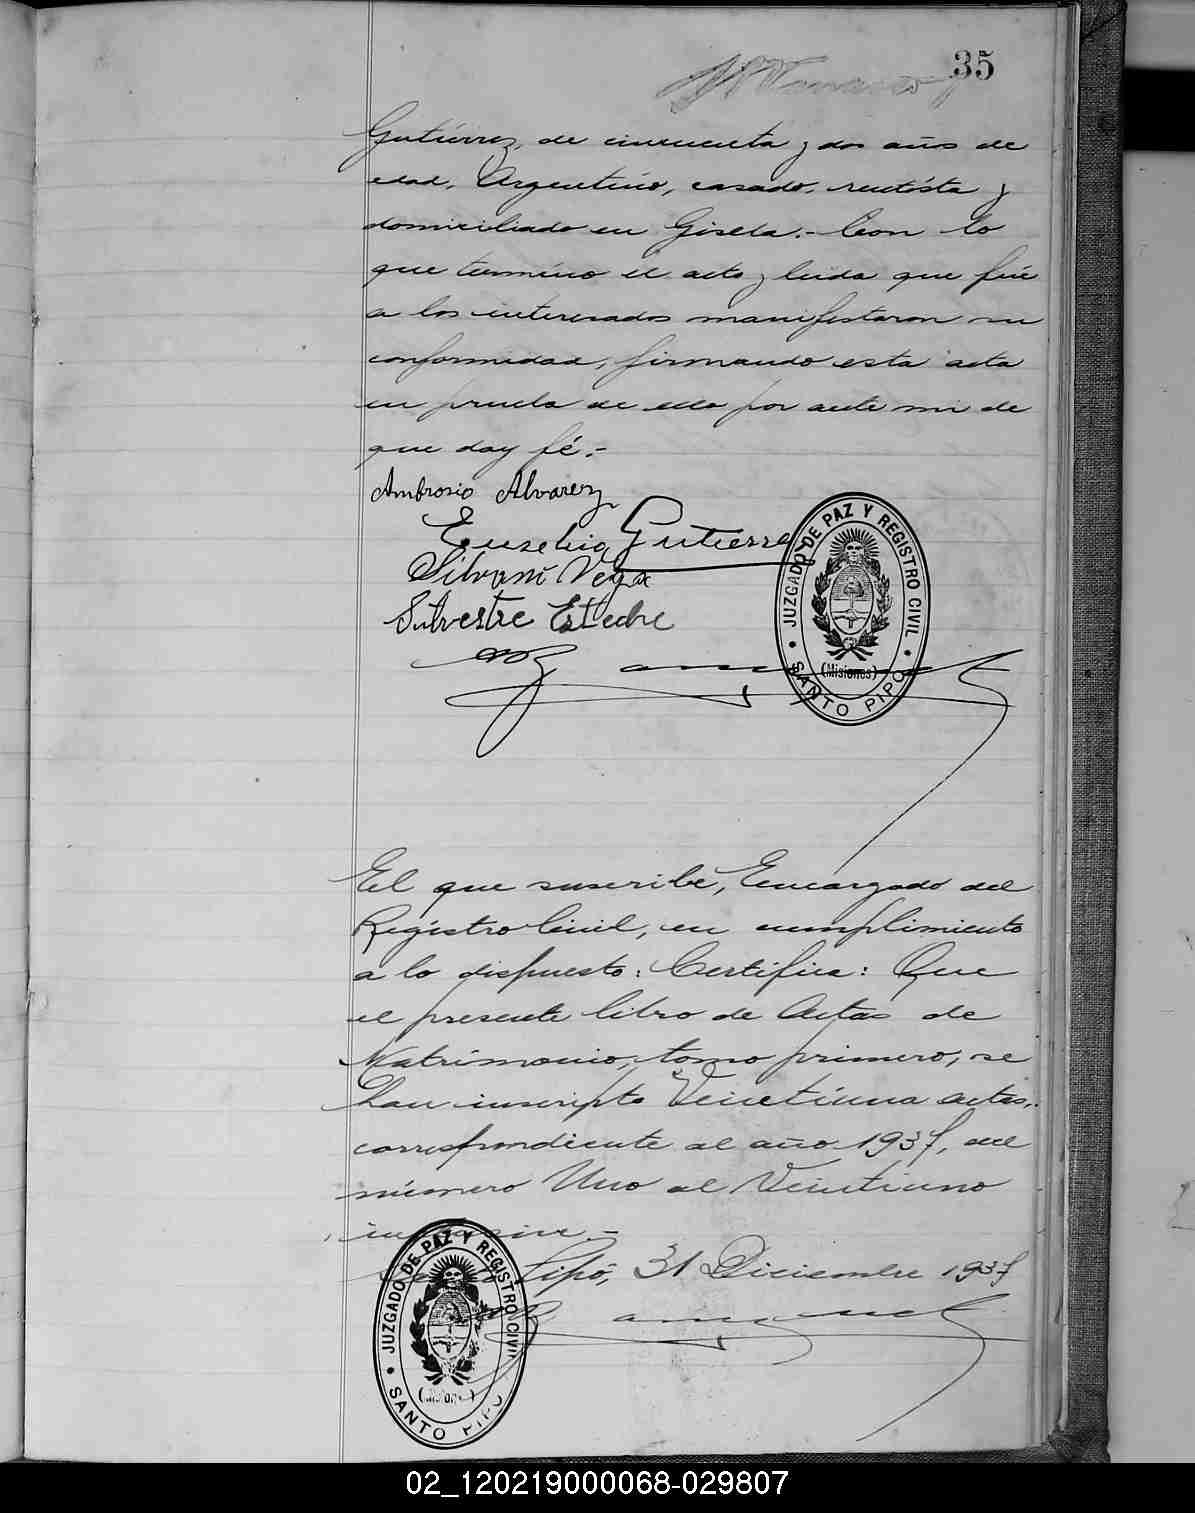 35
Gutiérrez, de cincuenta y dos años de
edad, Argentino, casado, rentista y
domiciliado en Gisela.- Con lo
que terminó el acto y leida que fué
a los interesados manifestaron su
conformidad, firmando esta acta
en prueba de ello por ante mi de
que doy fé.-
Ambrosio Alvarez
Eusebio Gutierrez
Silvano Vega
Silvestre
JUZGADO DE PAZ Y REGISTRO CIVIL
(Misiones)
SANTO PIPO
El que suscribe, Encargado del
Registro Civil, en cumplimiento
a lo dispuesto: Certifica: Que
el presente libro de Actas de
Matrimonio, tomo primero, se
han inscripto Veintiuna actas,
correspondiente al año 1937, del
número Uno al Veintiuno
inclusive.-
Santo Pipó, 31 Diciembre 1937
JUZGADO DE PAZ Y REGISTRO CIVIL
(Misiones)
SANTO PIPO
02_120219000068-029807